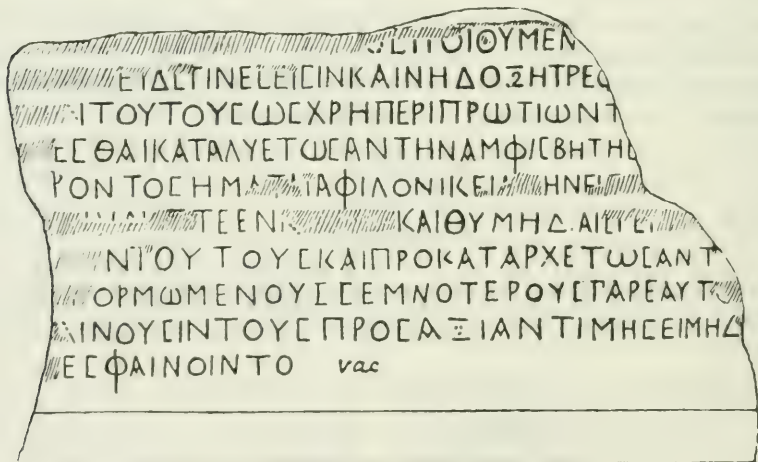 ΟΙΘΥΜΕΝ
ΕΙΔΕΤΙΝΕϹΕΙϹΙΝΚΑΙΝΗΔΟΞΗΤΡΕΦ
ΙΤΟΥΤΟΥϹΩϹΧΡΗΠΕΡΙΠΡΩΤΙΩΝΤ
ΕϹΘΑΙΚΑΤΑΛΥΕΤΩϹΑΝΤΗΝΑΜΦΙϹΒΗΤΗ
ΡΟΝΤΟϹΗΜ ΑΦΙΛΟΝΙΚΕΙ ΗΝΕΙ
ΤΕΕΝ ΚΑΙΘΥΜΗΔ.ΑΙ
ΝΤΟΥΤΟΥϹΚΑΙΠΡΟΚΑΤΑΡΧΕΤΩϹΑΝΤ
ΟΡΜΩΜΕΝΟΥϹϹΕΜΝΟΤΕΡΟΥϹΓΑΡΕΑΥΤ
ΙΝΟΥϹΙΝΤΟΥϹΠΡΟϹΑΞΙΑΝΤΙΜΗϹΕΙΜΗΔ
ΕϹΦΑΙΝΟΙΝΤΟ vac